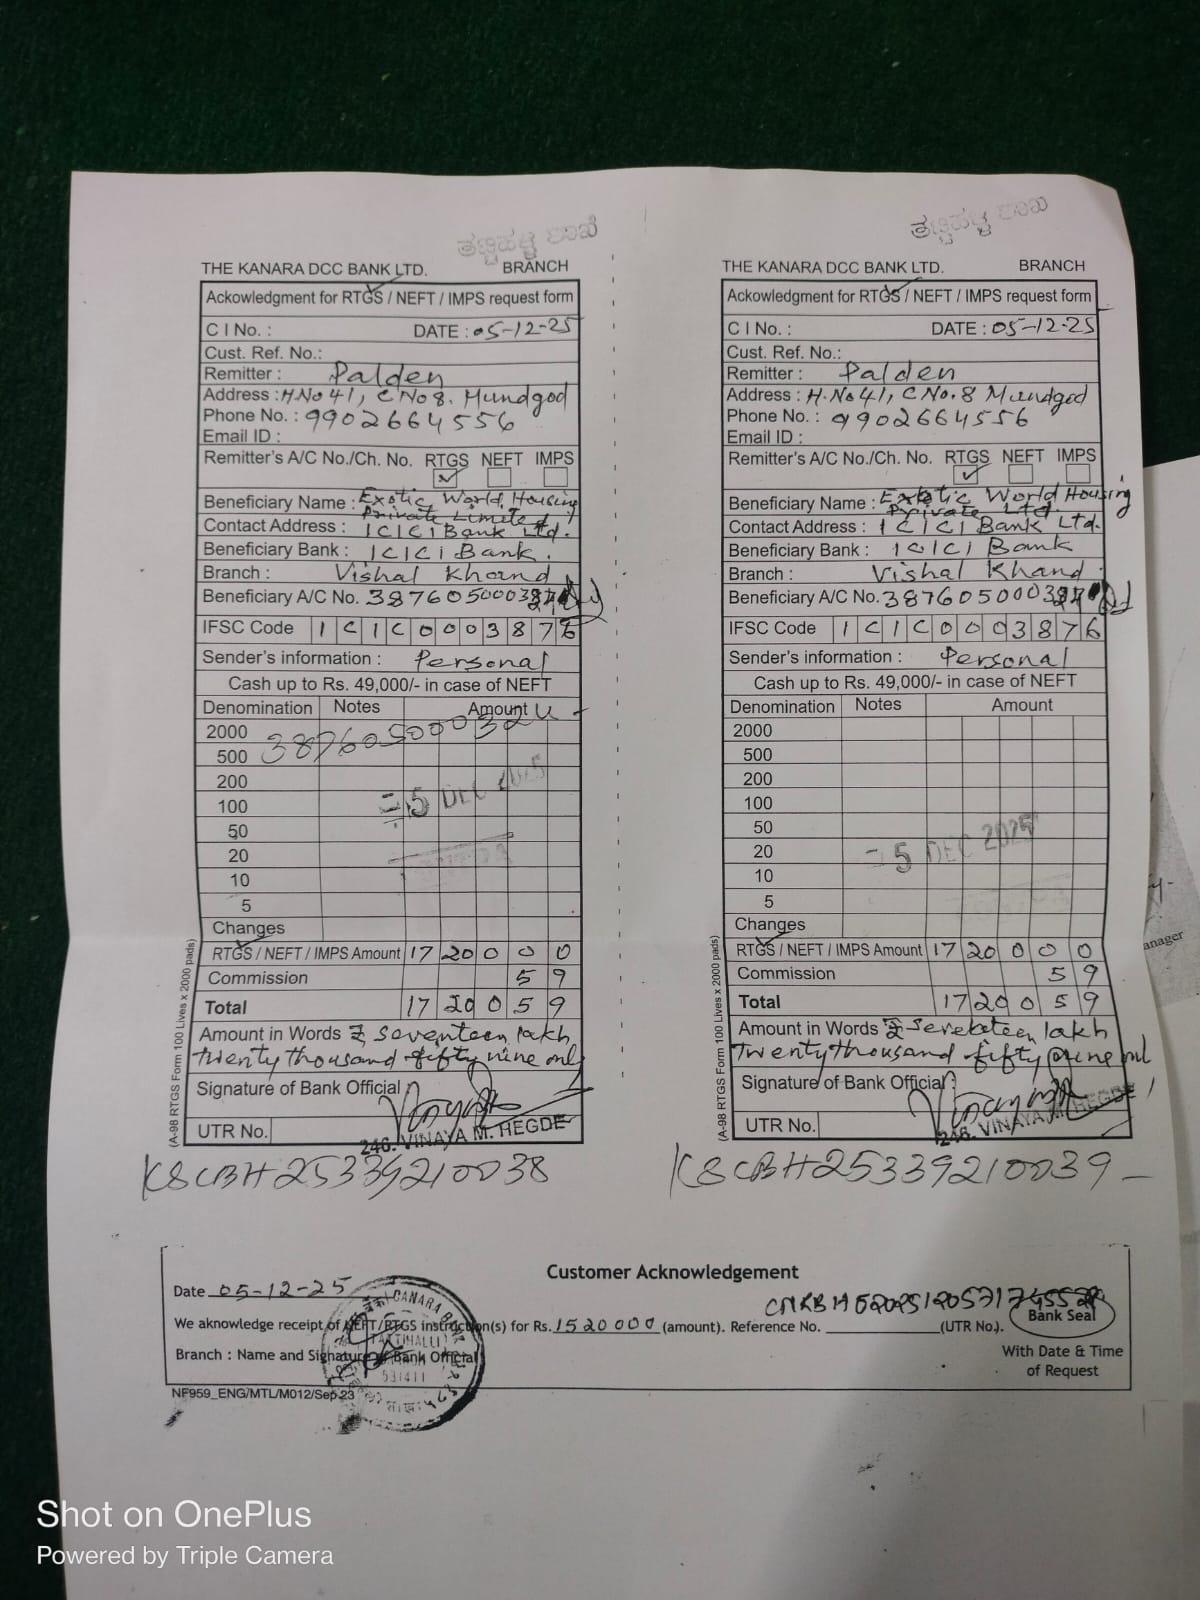 ತಟ್ಟಿಹಳ್ಳ ಶಾಖೆ
THE KANARA DCC BANK LTD. BRANCH
Ackowledgment for RTGS / NEFT / IMPS request form
C I No. : DATE : 05-12-25
Cust. Ref. No.:
Remitter : Palden
Address : H.No 41, C No 8. Mundgod
Phone No. : 9902664556
Email ID :
Remitter's A/C No./Ch. No. RTGS NEFT IMPS
Beneficiary Name : Exotic World Housing
Private Limited
Contact Address : ICICI Bank Ltd.
Beneficiary Bank : ICICI Bank.
Branch : Vishal Khand
Beneficiary A/C No. 3876050003
IFSC Code ICIC0003876
Sender's information : Personal
Cash up to Rs. 49,000/- in case of NEFT
Denomination Notes Amount
2000
500 387605000324
200
100 5 DEC 2025
50
20
10
5
Changes
RTGS / NEFT / IMPS Amount 17 20 0 0 0
Commission 5 9
Total 17 20 0 5 9
Amount in Words ₹ Seventeen lakh
twenty thousand fifty nine only
Signature of Bank Official :
246. VINAYA M. HEGDE
UTR No.
(A-98 RTGS Form 100 Lives x 2000 pads)
KSCBH25339210038
ತಟ್ಟಿಹಳ್ಳ ಶಾಖೆ
THE KANARA DCC BANK LTD. BRANCH
Ackowledgment for RTGS / NEFT / IMPS request form
C I No. : DATE : 05-12-25
Cust. Ref. No.:
Remitter : Palden
Address : H.No 41, C No. 8 Mundgod
Phone No. : 9902664556
Email ID :
Remitter's A/C No./Ch. No. RTGS NEFT IMPS
Beneficiary Name : Exotic World Housing
Private Ltd.
Contact Address : ICICI Bank Ltd.
Beneficiary Bank : ICICI Bank
Branch : Vishal Khand
Beneficiary A/C No. 387605000
IFSC Code ICIC0003876
Sender's information : Personal
Cash up to Rs. 49,000/- in case of NEFT
Denomination Notes Amount
2000
500
200
100
50
20 5 DEC 2025
10
5
Changes
RTGS / NEFT / IMPS Amount 17 20 0 0 0
Commission 5 9
Total 17 20 0 5 9
Amount in Words ₹ Seventeen lakh
Twenty thousand fifty nine onl
Signature of Bank Official :
246. VINAYA M. HEGDE
UTR No.
(A-98 RTGS Form 100 Lives x 2000 pads)
KSCBH25339210039
anager
Customer Acknowledgement
Date 05-12-25
We aknowledge receipt of NEFT/RTGS instruction(s) for Rs. 1520000 (amount). Reference No. (UTR No.).
Bank Seal
Branch : Name and Signature of Bank Official
With Date & Time
of Request
CANARA BANK
TATTIHALLI
581411
NF959_ENG/MTL/M012/Sep.23
Shot on OnePlus
Powered by Triple Camera